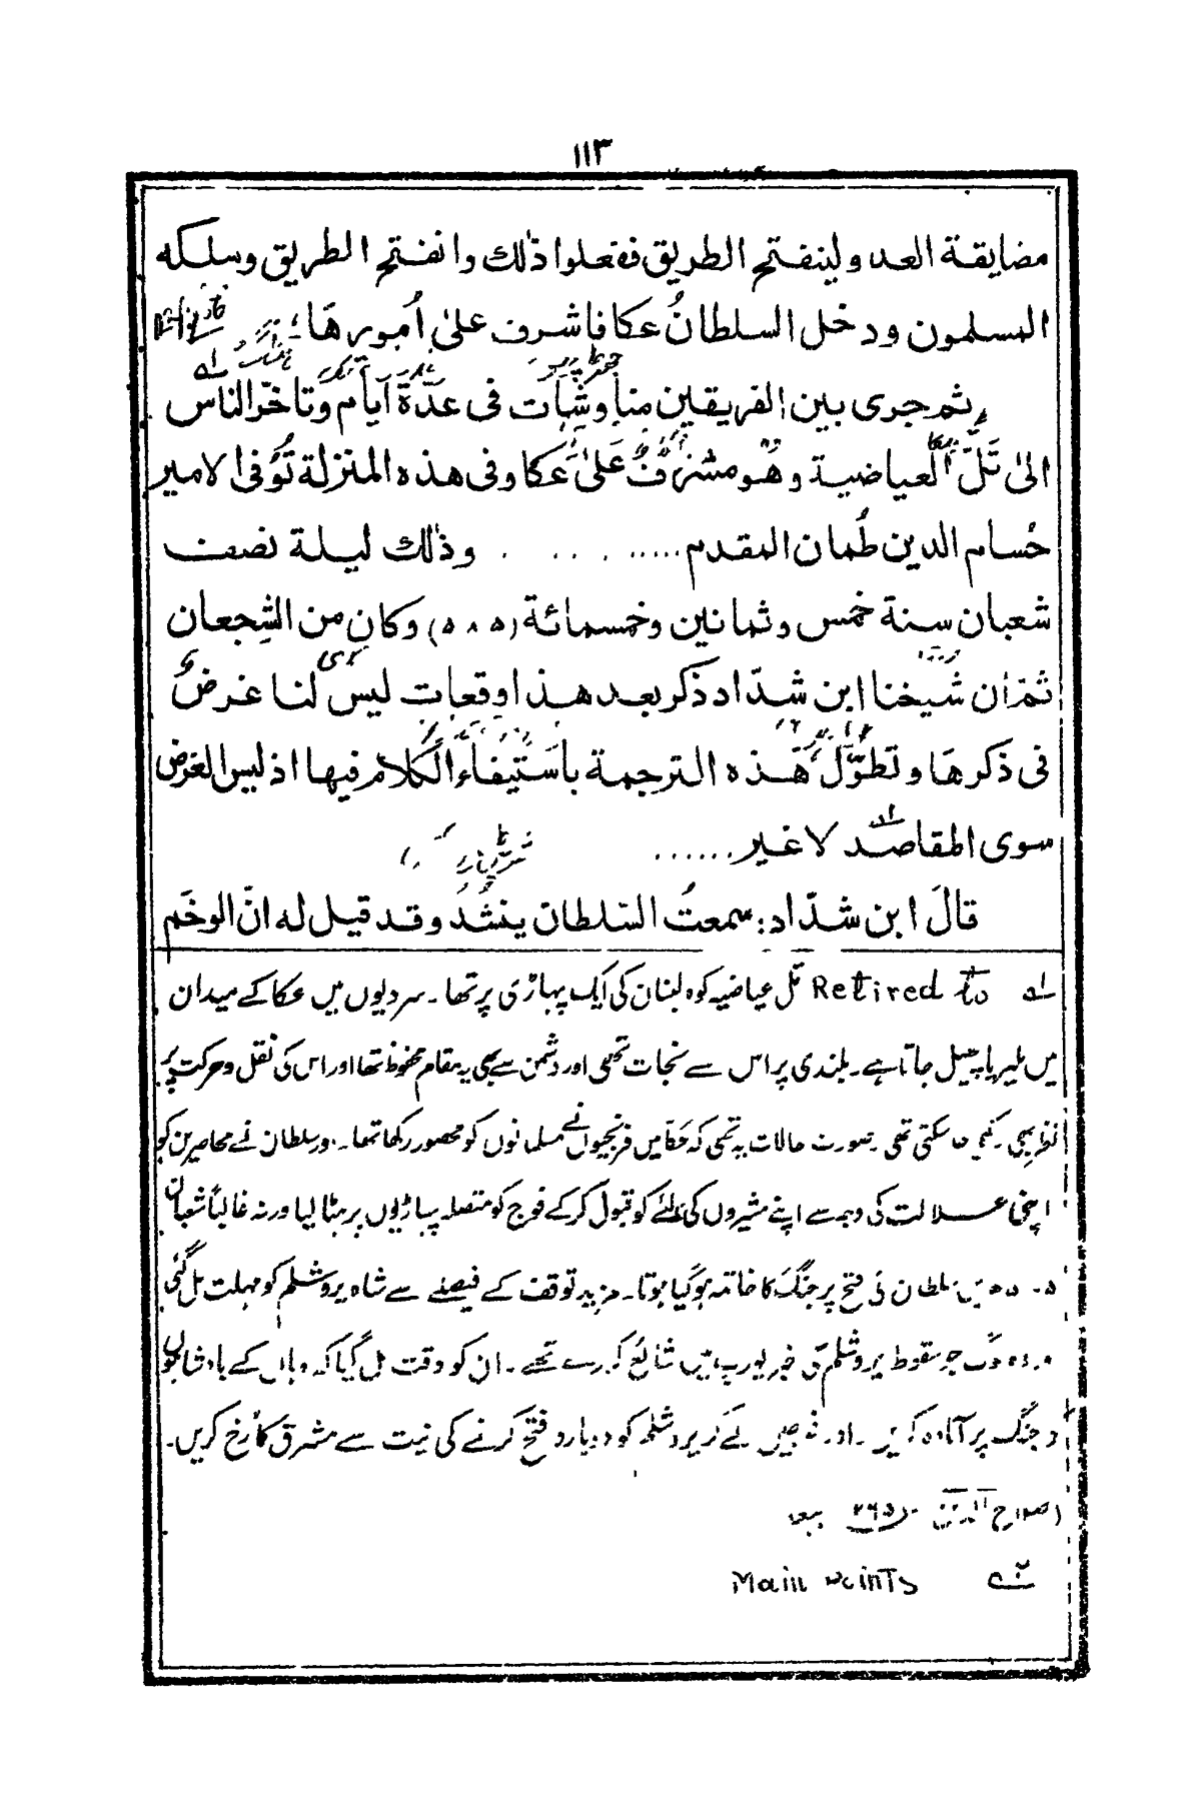 ۱۱۳
مضايقة العدو لينفتح الطريق ففعلوا ذلك وانفتح الطريق وسلكه
المسلمون ودخل السلطانُ عكا فاشرف على أمورهَا؛
ثم جرى بين الفريقين مناوشات فى عدّة أيام وتاخّر الناس
الى تَلّ العياضية وهُو مشرفٌ عَلىٰ عَكا وفى هذه المنزلة تُوُفى الامير
حُسام الدين طُمان المقدم..... . .. . وذلك ليلة نصف
شعبان سنة خمس وثمانين وخمسمائة (۵۸۵) وكان من الشجعان
ثمّ ان شيخنا ابن شدّاد ذكر بعد هذا وقعات ليس لنا غرضٌ
فى ذكرهَا وتطوّل هَذه الترجمة باستيفاء الكلام فيها اذ ليس الغرض
سوى المقاصد لا غير ......
قالَ ابن شدّاد: سمعتُ السلطان ينشد وقد قيل له انّ الوخَم
۱ Retired to تل عیاضیہ کوہ لبنان کی ایک پہاڑی پر تھا۔ سردیوں میں عکا کے میدان
میں ملیریا پھیل جاتا ہے۔ بلندی پر اس سے نجات تھی اور دشمن سے بھی یہ مقام محفوظ تھا اور اس کی نقل و حرکت پر
نظر بھی رکھی جا سکتی تھی صورت حالات یہ تھی کہ عکا میں فرنجیوں نے مسلمانوں کو محصور رکھا تھا۔ اور سلطان نے محاصرین کو
اپنی علالت کی وجہ سے اپنے مشیروں کی رائے کو قبول کر کے فوج کو متصلہ پہاڑیوں پر ہٹا لیا ورنہ غالباً شعبان
میں سلطان کی فتح پر جنگ کا خاتمہ ہو گیا ہوتا۔ مزید توقف کے فیصلے سے شاہ یروشلم کو مہلت مل گئی
جو سقوط یروشلم کی خبر یورپ میں شائع کر رہے تھے۔ ان کو وقت مل گیا کہ وہاں کے بادشاہوں
کو جنگ پر آمادہ کریں۔ اور فوجیں لے کر یروشلم کو دوبارہ فتح کرنے کی نیت سے مشرق کا رخ کریں۔
صلاح الدین ۲۶۵ ببعد
۲ Main Points